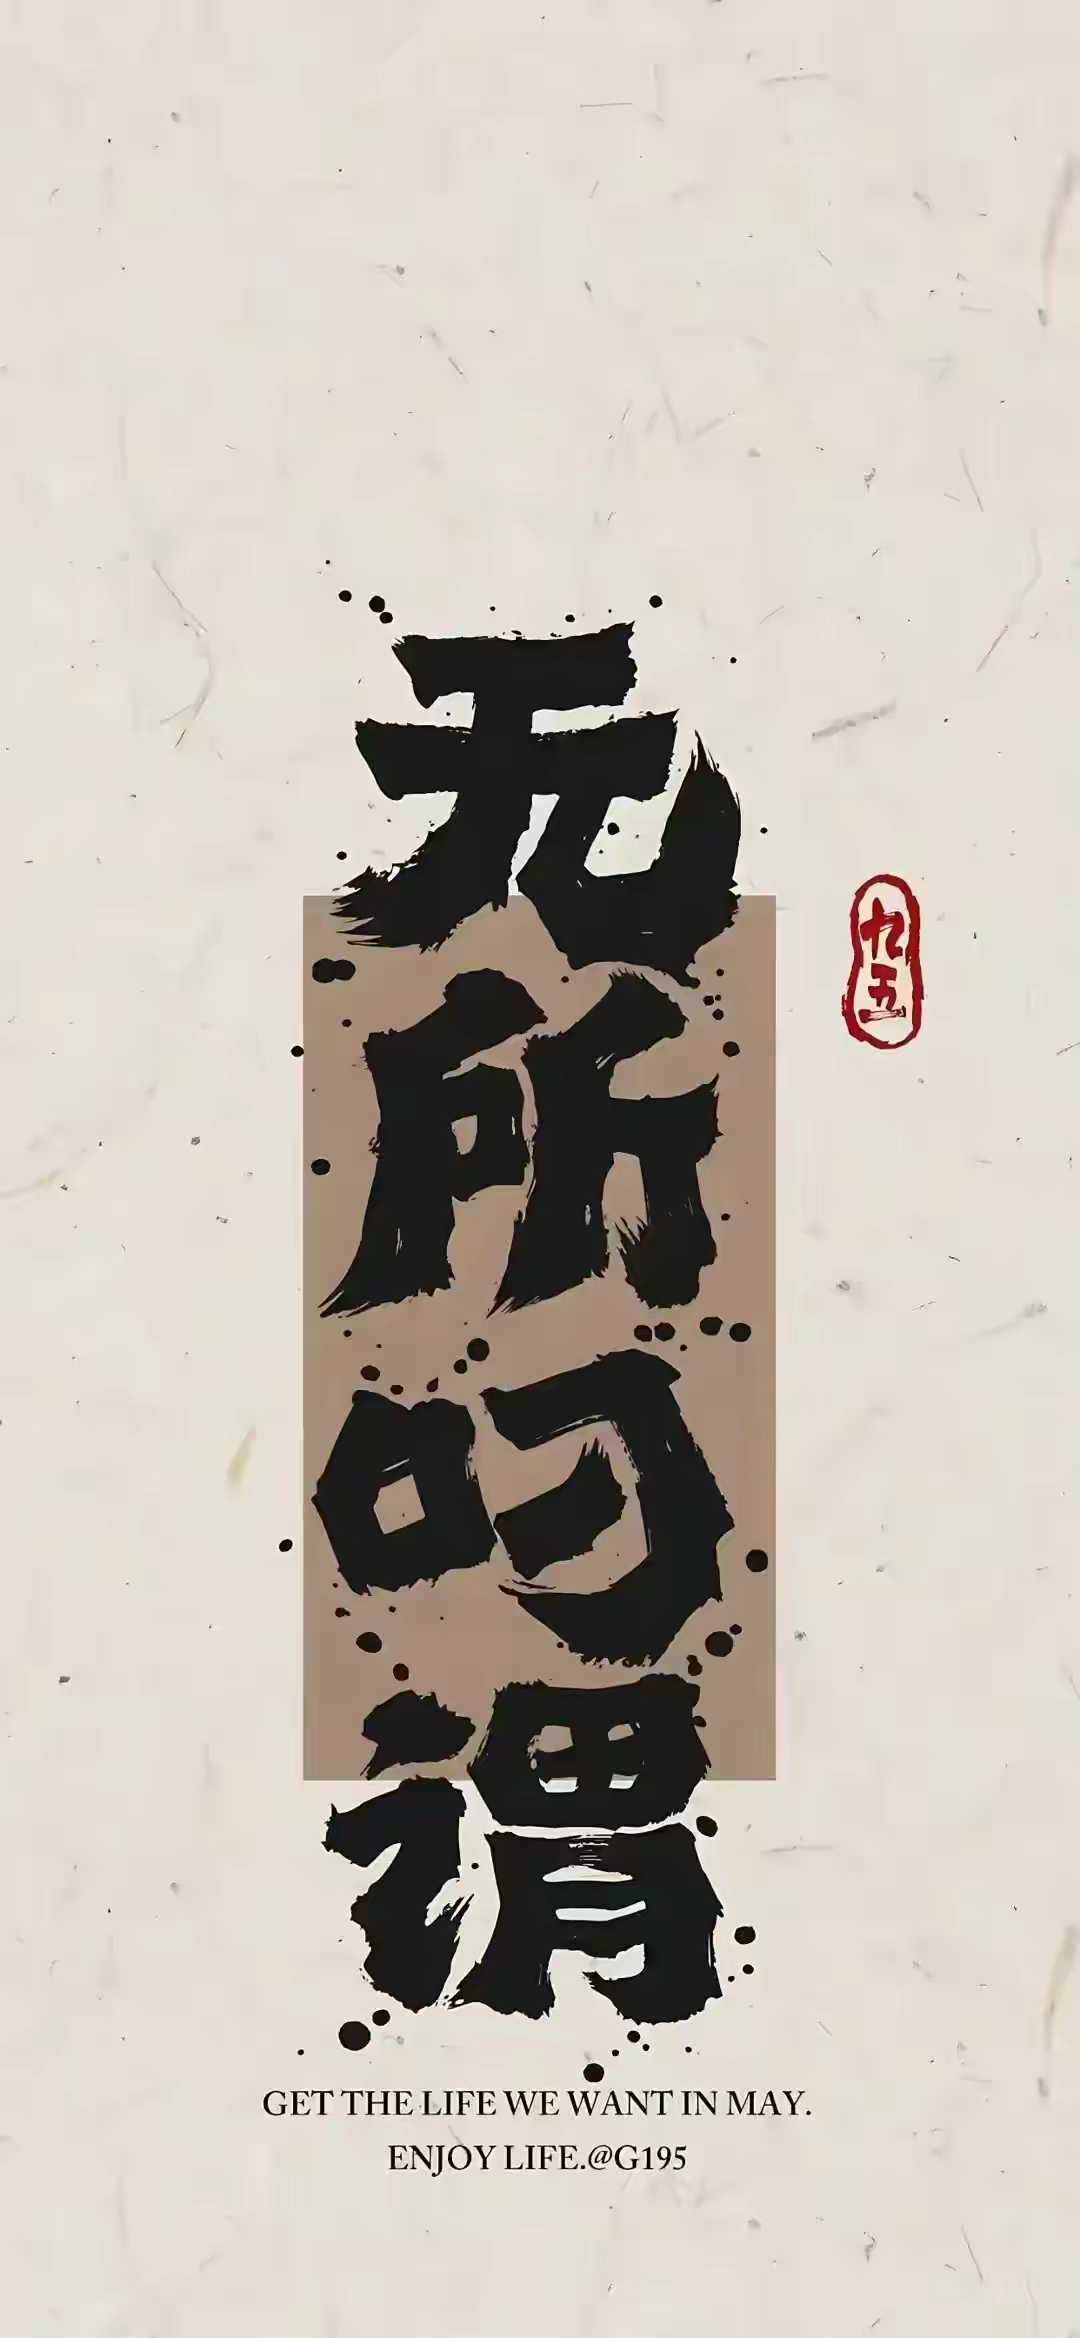 无所叼谓
九五
GET THE LIFE WE WANT IN MAY.
ENJOY LIFE.@G195